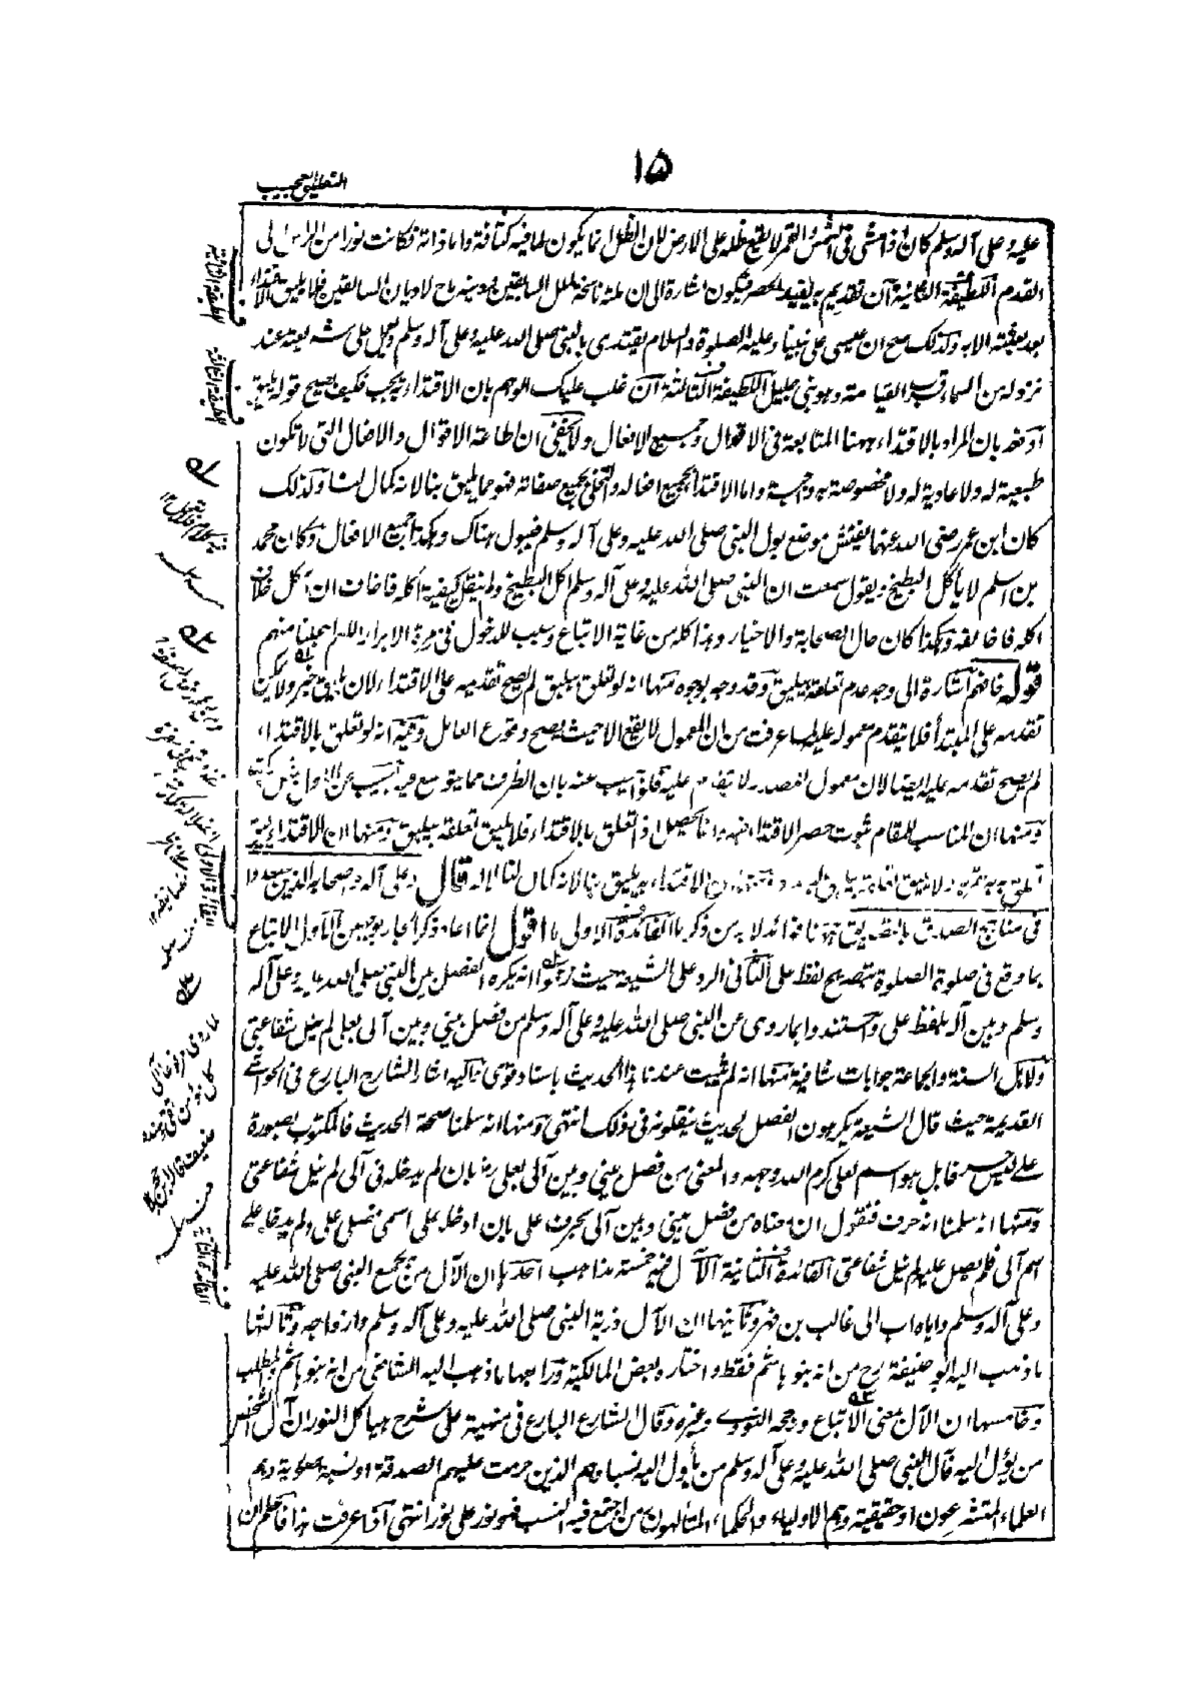 ١٥
التعليق العجيب
عليه وعلى آله وسلم كان اذا مشى في الشمس والقمر لا يقع ظله على الارض لان الظل انما يكون لما فيه كثافة واما ذاته فكانت نورا من الراس الى
القدم اللطيفة الثانية ان تقديم به يفيد الحصر فيكون اشارة الى ان ملته ناسخة لملل السابقين ودينه ماح لاديان السابقين فلا يليق الاقتداء
بعد بعثته الا به وكذلك صح ان عيسى على نبينا وعليه الصلوة والسلام يقتدى بالنبي صلى الله عليه وعلى آله وسلم ويعمل على شريعته عند
نزوله من السماء قرب القيامة وهو نبي جليل اللطيفة الثالثة ان غلب عليك الوهم بان الاقتداء به يجب فكيف يصح قوله يليق
ادفعه بان المراد بالاقتداء ههنا المتابعة في الاقوال وجميع الافعال ولا يخفى ان اطاعة الاقوال والافعال التي لا تكون
طبعية له ولا عادية له ولا مخصوصة به واجبة واما الاقتداء بجميع افعاله والتخلق بجميع صفاته فهو مما يليق بنا لانه كمال لنا وكذلك
كان ابن عمر رضي الله عنهما يفتش موضع بول النبي صلى الله عليه وعلى آله وسلم فيبول هناك وهكذا جميع الافعال وكان محمد
بن اسلم لا ياكل البطيخ ويقول سمعت ان النبي صلى الله عليه وعلى آله وسلم اكل البطيخ ولم ينقل كيفية اكله فاخاف ان آكل خلاف
اكله فاخالفه وهكذا كان حال الصحابة والاخيار وهذا كله من غاية الاتباع وسبب للدخول في زمرة الابرار اللهم اجعلنا منهم
قوله فافهم اشارة الى وجه عدم تعلقه بيليق وقد وجه بوجوه منها انه لو تعلق بيليق لم يصح تقديمه على الاقتداء لان يليق خبر ولا يمكن
تقدمه على المبتدأ فلا يتقدم معموله عليه لما عرفت من ان المعمول لا يقع الا حيث يصح وقوع العامل وفيه انه لو تعلق بالاقتداء
لم يصح تقدمه عليه ايضا لان معمول المصدر لا يتقدم عليه فلو اجيب عنه بان الظرف مما يتوسع فيه
ومنها ان المناسب للمقام ثبوت حصر الاقتداء فيه وانما يحصل اذا تعلق بالاقتداء فلا يليق تعلقه بيليق ومنها ان الاقتداء
الاقتداء به يليق بنا لانه كمال لنا لا له قال وعلى آله واصحابه الذين سعدوا
في مناهج الصدق بالتصديق ههنا فوائد لا بد من ذكرها الفائدة الاولى ما اقول انما اعاد ذكر الجار بوجهين الاول الاتباع
بما وقع في صلوة الصلوة بتصريح لفظ على الثاني الرد على الشيعة حيث زعموا انه يكره الفصل بين النبي صلى الله عليه وعلى آله
وسلم وبين آله بلفظ على واستندوا بما روى عن النبي صلى الله عليه وعلى آله وسلم من فصل بيني وبين آلى بعلى لم ينل شفاعتي
ولاهل السنة والجماعة جوابات شافية منها انه لم يثبت عندنا هذا الحديث باسناد قوى واليه اشار الشارح البارع في الحواشي
القديمة حيث قال الشيعة يكرهون الفصل لحديث ينقلونه في ذلك انتهى ومنها انه سلمنا صحة الحديث فالمكتوب بصورة
على ليس بحرف بل هو اسم لعلى كرم الله وجهه والمعنى من فصل بيني وبين آلى بعلى بان لم يدخله في آلى لم ينل شفاعتي
ومنها انه سلمنا انه حرف فنقول ان معناه من فصل بيني وبين آلى بحرف على بان ادخل على اسمى فصل على ولم يدخل على
اسم آلى فلم يصل عليهم لم ينل شفاعتي الفائدة الثانية الآل فيه خمسة مذاهب احدها ان الآل من يجمع النبي صلى الله عليه
وعلى آله وسلم واياه اب الى غالب بن فهر وثانيها ان الآل ذرية النبي صلى الله عليه وعلى آله وسلم وازواجه وثالثها
ما ذهب اليه ابو حنيفة رح من انه بنو هاشم فقط واختاره بعض المالكية ورابعها ما ذهب اليه الشافعي من انه بنو هاشم والمطلب
وخامسها ان الآل بمعنى الاتباع ورجحه النووي وغيره وقال الشارح البارع في منهية على شرح هياكل النور ان آل الشخص
من يؤل اليه قال النبي صلى الله عليه وعلى آله وسلم من يأول اليه نسبا وهم الذين حرمت عليهم الصدقة او نسبة معنوية وهم
العلماء المتشرعون او حقيقية وهم الاولياء والحكماء المتالهون ومن اجتمع فيه النسب فهو نور على نور انتهى اذا عرفت هذا فاعلم ان
اللطيفة الثانية
اللطيفة الثالثة
الفائدة الاولى
الفائدة الثانية